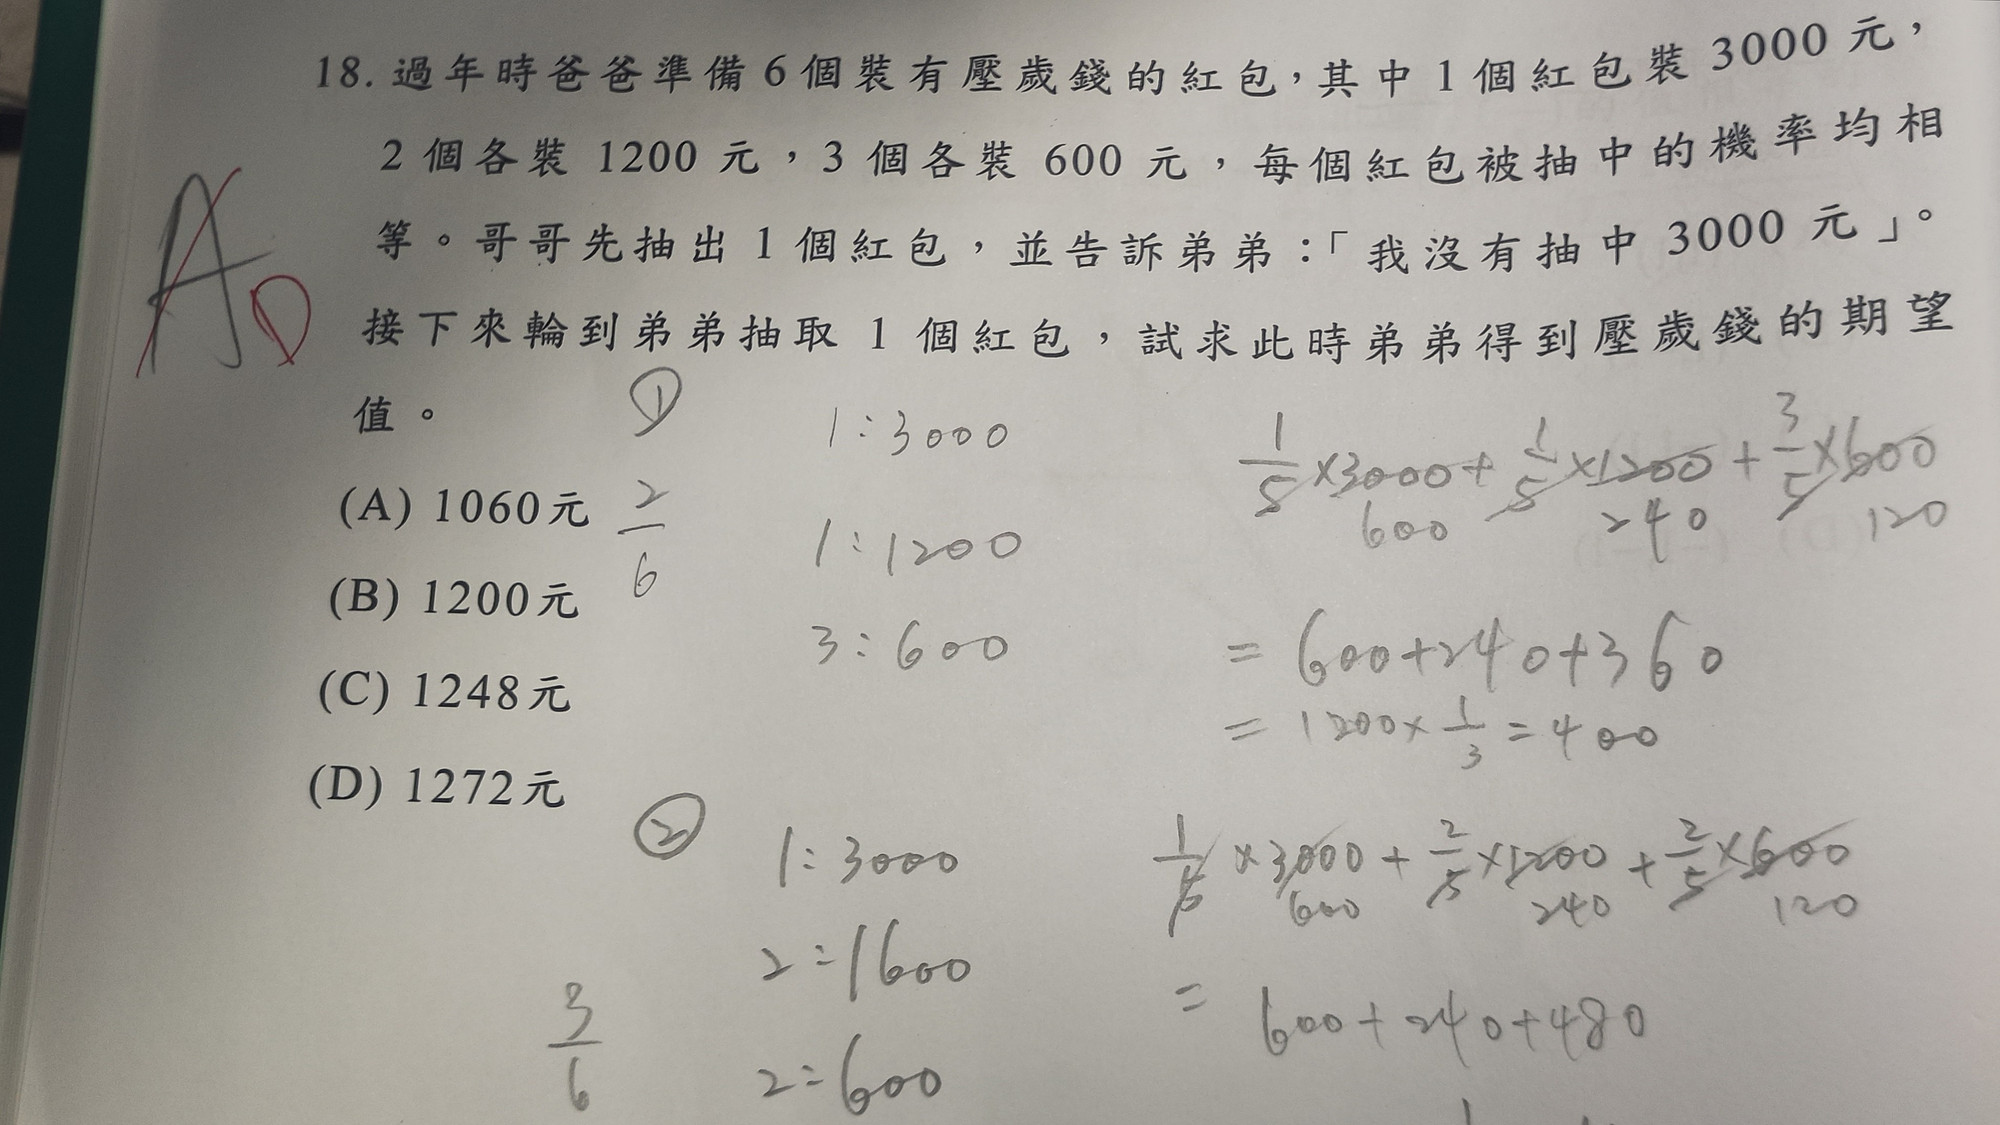 18. 過年時爸爸準備6個裝有壓歲錢的紅包，其中1個紅包裝3000元，
2個各裝1200元，3個各裝600元，每個紅包被抽中的機率均相
等。哥哥先抽出1個紅包，並告訴弟弟：「我沒有抽中3000元」。
接下來輪到弟弟抽取1個紅包，試求此時弟弟得到壓歲錢的期望
值。
A D
(A) 1060元
(B) 1200元
(C) 1248元
(D) 1272元
①
2/6
1:3000
1:1200
3:600
1/5×3000+1/5×1200+3/5×600
600 240 120
=600+240+360
=1200×1/3=400
②
3/6
1:3000
2:1600
2:600
1/5×3000+2/5×1200+2/5×600
600 240 120
=600+240+480